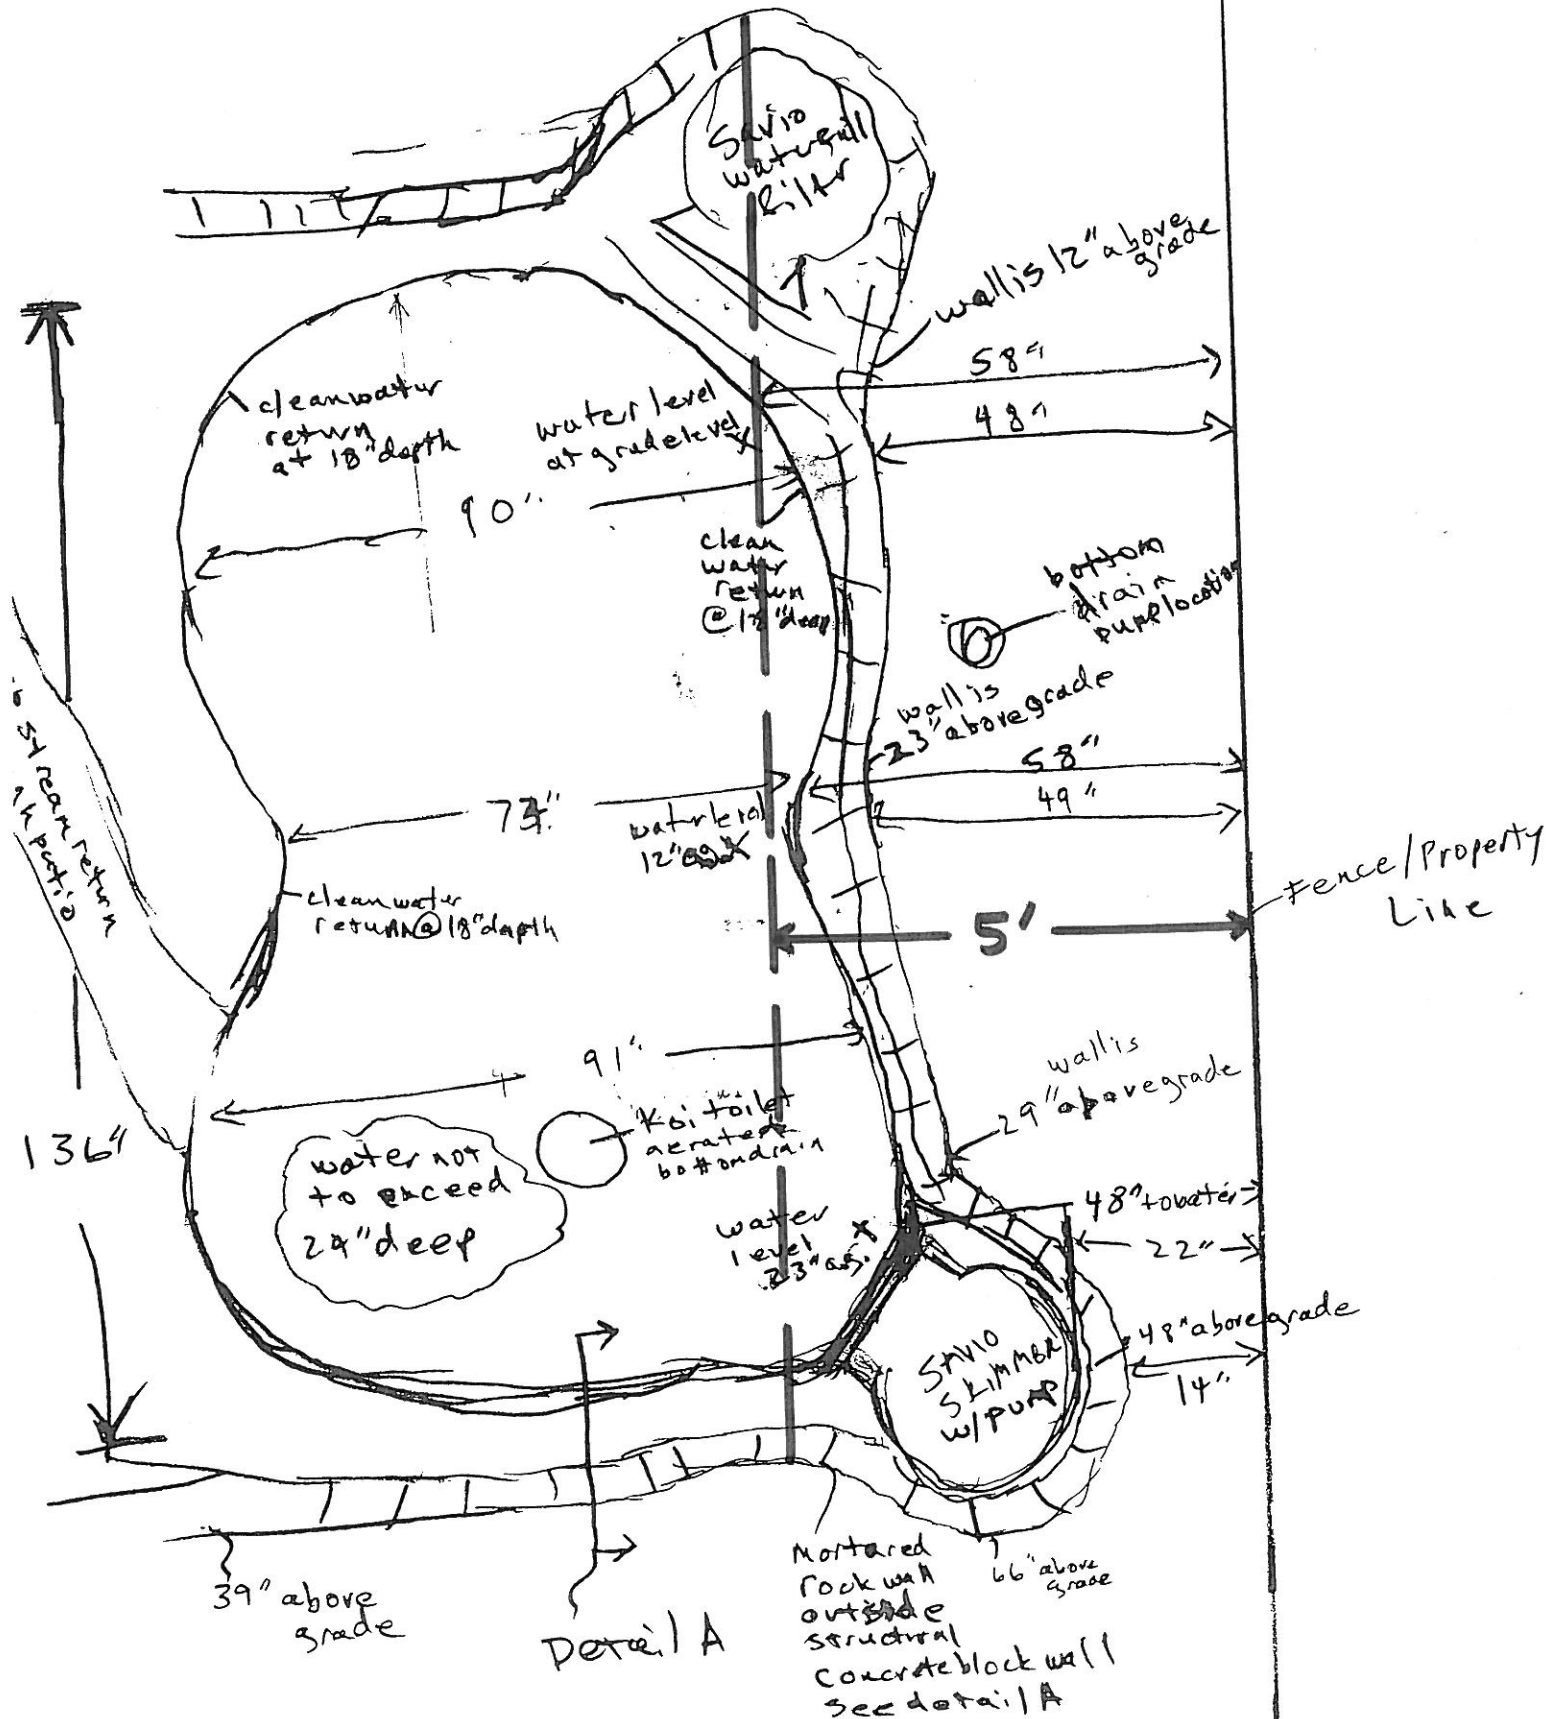 Savio
waterfall
filter
wall is 12" above
grade
58"
48"
clean water
return
at 18" depth
water level
at grade level
90"
clean
water
return
@ 18" deep
bottom
drain
pump location
wall is
23" above grade
58"
49"
73"
water level
12"
stream return
in patio
clean water
return @ 18" depth
Fence/Property
Line
5'
91"
wall is
29" above grade
Koi toilet
aerated
bottom drain
136"
water not
to exceed
24" deep
water
level
23" ag.
48" to water
22"
48" above grade
14"
SAVIO
SKIMMER
w/pump
39" above
grade
Detail A
Mortared
rock wall
outside
structural
concrete block wall
see detail A
66" above
grade